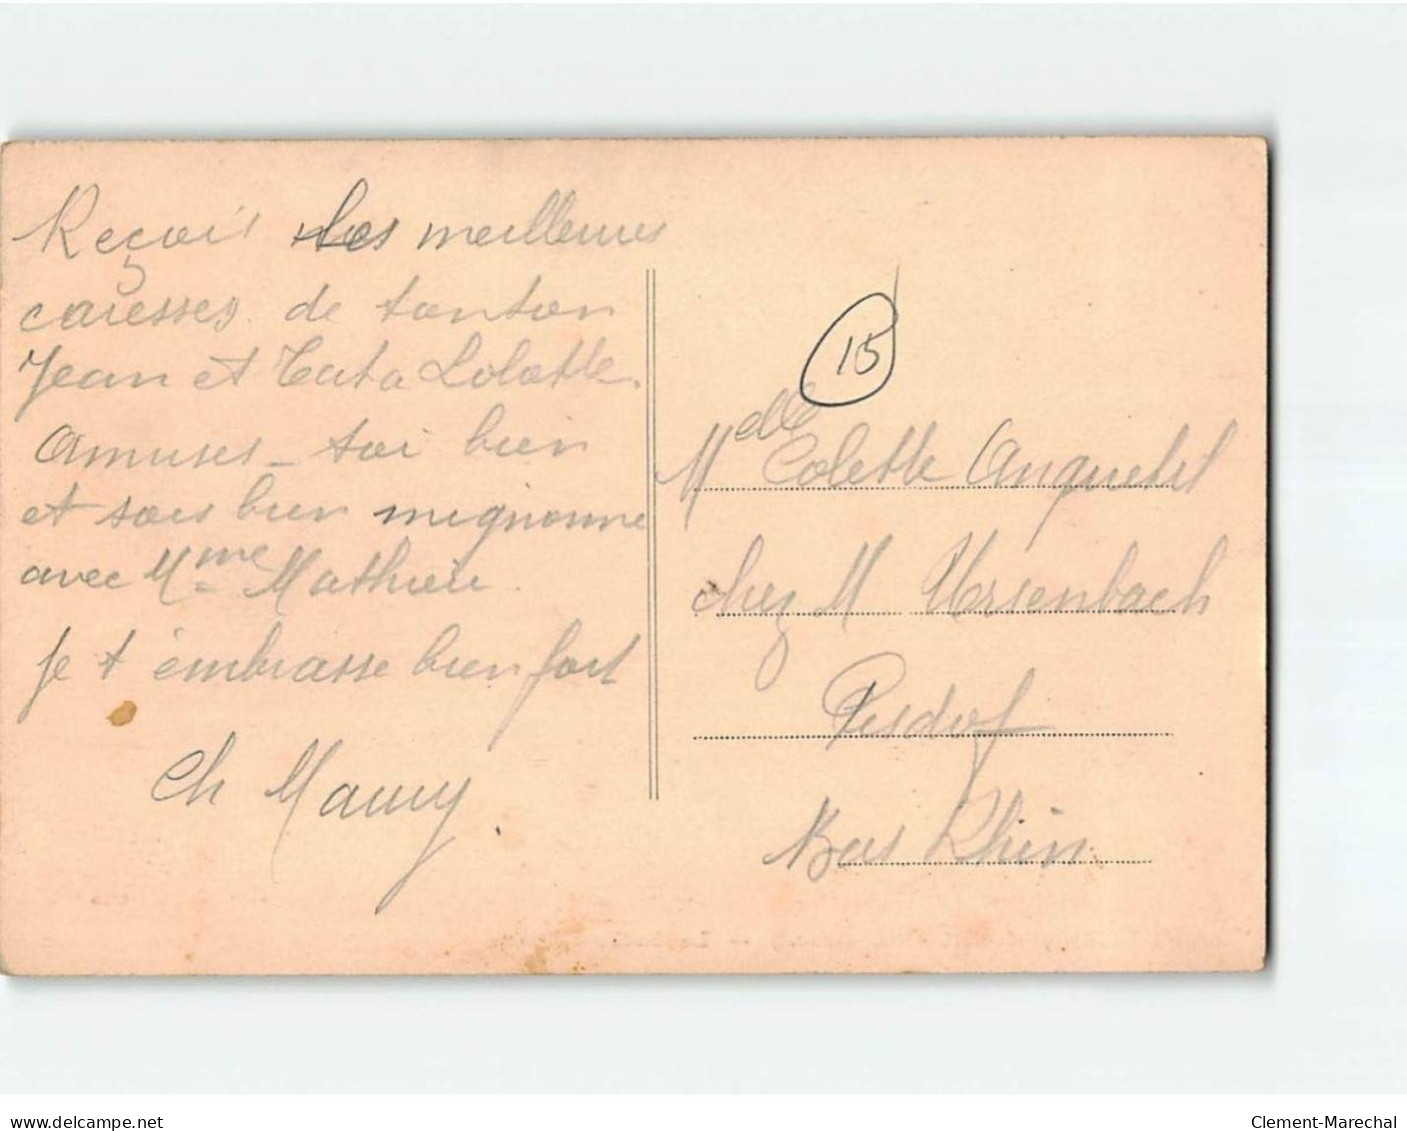 Reçois les meilleures
caresses de tonton
Jean et Tata Lolotte.
Amuses-toi bien
et sois bien mignonne
avec Mme Mathieu
Je t'embrasse bien fort
Ch Maury
15
Mdlle Colette Anquetil
chez M Ursenbach
Bas Rhin
www.delcampe.net
Clement-Marechal